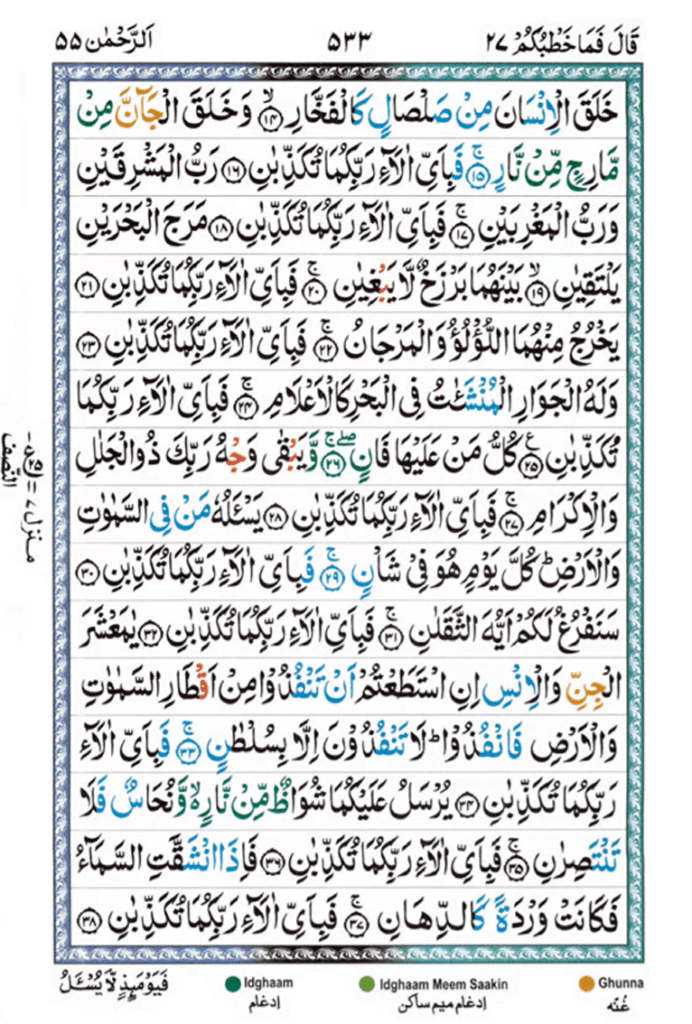 قَالَ فَمَا خَطْبُكُمْ ٢٧ ٥٣٣ اَلرَّحْمٰن ٥٥
خَلَقَ الْاِنْسَانَ مِنْ صَلْصَالٍ كَالْفَخَّارِ ۙ﴿۱۴﴾ وَخَلَقَ الْجَآنَّ مِنْ
مَّارِجٍ مِّنْ نَّارٍ ۚ﴿۱۵﴾ فَبِاَىِّ اٰلَآءِ رَبِّكُمَا تُكَذِّبٰنِ ﴿۱۶﴾ رَبُّ الْمَشْرِقَيْنِ
وَرَبُّ الْمَغْرِبَيْنِ ۚ﴿۱۷﴾ فَبِاَىِّ اٰلَآءِ رَبِّكُمَا تُكَذِّبٰنِ ﴿۱۸﴾ مَرَجَ الْبَحْرَيْنِ
يَلْتَقِيٰنِ ۙ﴿۱۹﴾ بَيْنَهُمَا بَرْزَخٌ لَّا يَبْغِيٰنِ ۚ﴿۲۰﴾ فَبِاَىِّ اٰلَآءِ رَبِّكُمَا تُكَذِّبٰنِ ﴿۲۱﴾
يَخْرُجُ مِنْهُمَا اللُّؤْلُؤُ وَالْمَرْجَانُ ۚ﴿۲۲﴾ فَبِاَىِّ اٰلَآءِ رَبِّكُمَا تُكَذِّبٰنِ ﴿۲۳﴾
وَلَهُ الْجَوَارِ الْمُنْشَـٰٔتُ فِى الْبَحْرِ كَالْاَعْلَامِ ۚ﴿۲۴﴾ فَبِاَىِّ اٰلَآءِ رَبِّكُمَا
تُكَذِّبٰنِ ﴿۲۵﴾ ع كُلُّ مَنْ عَلَيْهَا فَانٍ ۚۖ﴿۲۶﴾ وَّيَبْقٰى وَجْهُ رَبِّكَ ذُو الْجَلٰلِ
وَالْاِكْرَامِ ۚ﴿۲۷﴾ فَبِاَىِّ اٰلَآءِ رَبِّكُمَا تُكَذِّبٰنِ ﴿۲۸﴾ يَسْـَٔلُهٗ مَنْ فِى السَّمٰوٰتِ
وَالْاَرْضِ ؕ كُلَّ يَوْمٍ هُوَ فِىْ شَاْنٍ ۚ﴿۲۹﴾ فَبِاَىِّ اٰلَآءِ رَبِّكُمَا تُكَذِّبٰنِ ﴿۳۰﴾
سَنَفْرُغُ لَكُمْ اَيُّهَ الثَّقَلٰنِ ۚ﴿۳۱﴾ فَبِاَىِّ اٰلَآءِ رَبِّكُمَا تُكَذِّبٰنِ ﴿۳۲﴾ يٰمَعْشَرَ
الْجِنِّ وَالْاِنْسِ اِنِ اسْتَطَعْتُمْ اَنْ تَنْفُذُوْا مِنْ اَقْطَارِ السَّمٰوٰتِ
وَالْاَرْضِ فَانْفُذُوْا ؕ لَا تَنْفُذُوْنَ اِلَّا بِسُلْطٰنٍ ۚ﴿۳۳﴾ فَبِاَىِّ اٰلَآءِ
رَبِّكُمَا تُكَذِّبٰنِ ﴿۳۴﴾ يُرْسَلُ عَلَيْكُمَا شُوَاظٌ مِّنْ نَّارٍ ۙ۬ وَّنُحَاسٌ فَلَا
تَنْتَصِرٰنِ ۚ﴿۳۵﴾ فَبِاَىِّ اٰلَآءِ رَبِّكُمَا تُكَذِّبٰنِ ﴿۳۶﴾ فَاِذَا انْشَقَّتِ السَّمَآءُ
فَكَانَتْ وَرْدَةً كَالدِّهَانِ ۚ﴿۳۷﴾ فَبِاَىِّ اٰلَآءِ رَبِّكُمَا تُكَذِّبٰنِ ﴿۳۸﴾
النّصف
منزل ٧
فَيَوْمَئِذٍ لَّا يُسْـَٔلُ
Idghaam
إدغام
Idghaam Meem Saakin
إدغام ميم ساكن
Ghunna
غُنّه